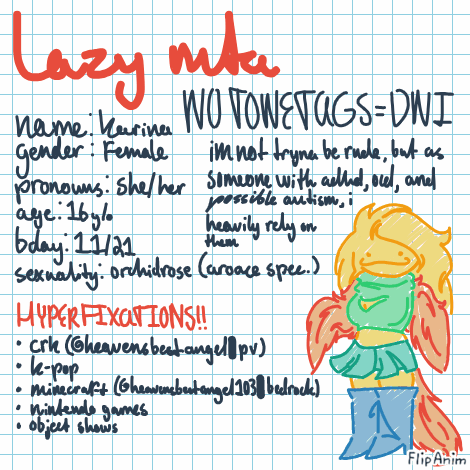 Lazy mtc
NO TONETAGS=DNI
name: Karina
gender: Female
pronouns: she/her
age: 16 y/o
bday: 11/21
sexuality: orchidrose (aroace spec.)
im not tryna be rude, but as
someone with adhd, ocd, and
possible autism, i
heavily rely on
them
HYPERFIXATIONS!!
• crk (@heavensbestangel pv)
• k-pop
• minecraft (@heavensbestangel103 bedrock)
• nintendo games
• object shows
FlipAnim